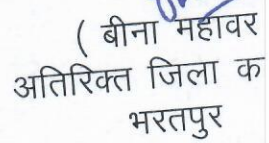 ( बीना महावर
अतिरिक्त जिला क
भरतपुर